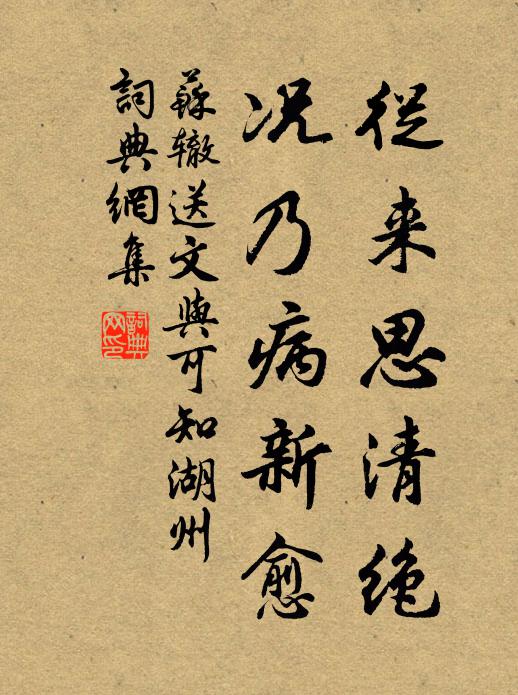 從来思清絶
况乃病新愈
蘇辙送文與可知湖州
詞典網集
詞典
网印